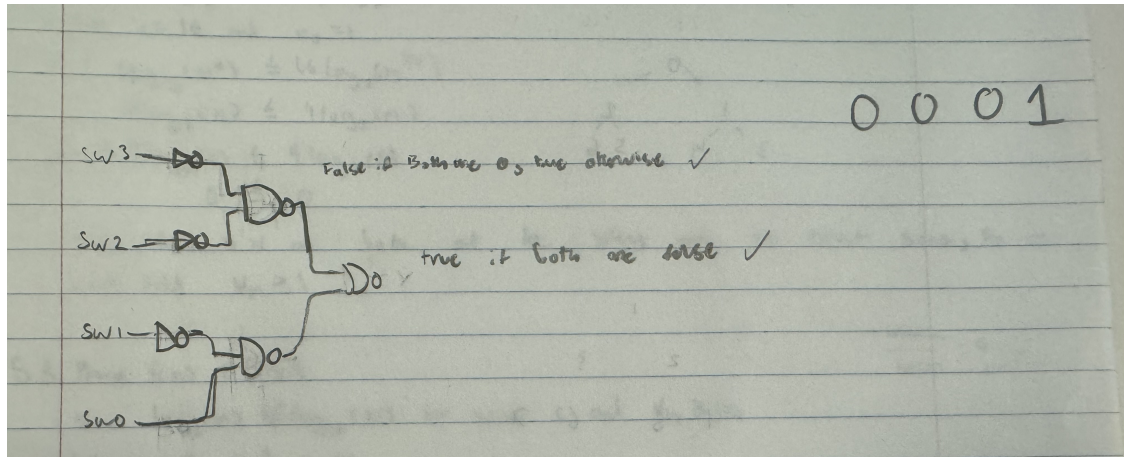 0 0 0 1
SW3
False if Both are 0, true otherwise ✓
SW2
true if both are false ✓
SW1
SW0